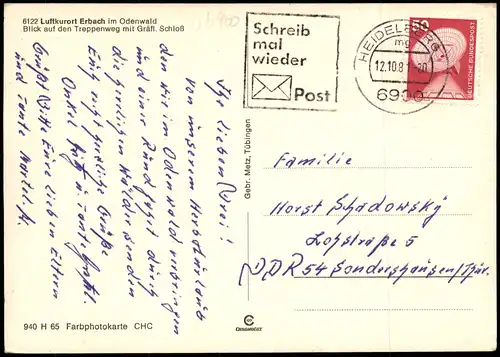 6122 Luftkurort Erbach im Odenwald
Blick auf den Treppenweg mit Gräfl. Schloß
Schreib
mal
wieder
Post
HEIDELBERG 1
12.10.8
6900
50
DEUTSCHE BUNDESPOST
Ihr lieben Drei!
Von unserem Herbsturlaub
den wir im Odenwald verbringen
und einer Rundfahrt durch
die herrlichen Wälder senden
Euch recht herzliche Grüße
Onkel Fritz u. Tante
Grüßt bitte Eure lieben Eltern
und Tante
Gebr. Metz, Tübingen
Familie
Horst Schadowsky
Lohstraße 5
DDR 54 Sondershausen/Thür.
940 H 65 Farbphotokarte CHC
CHROMOLUX